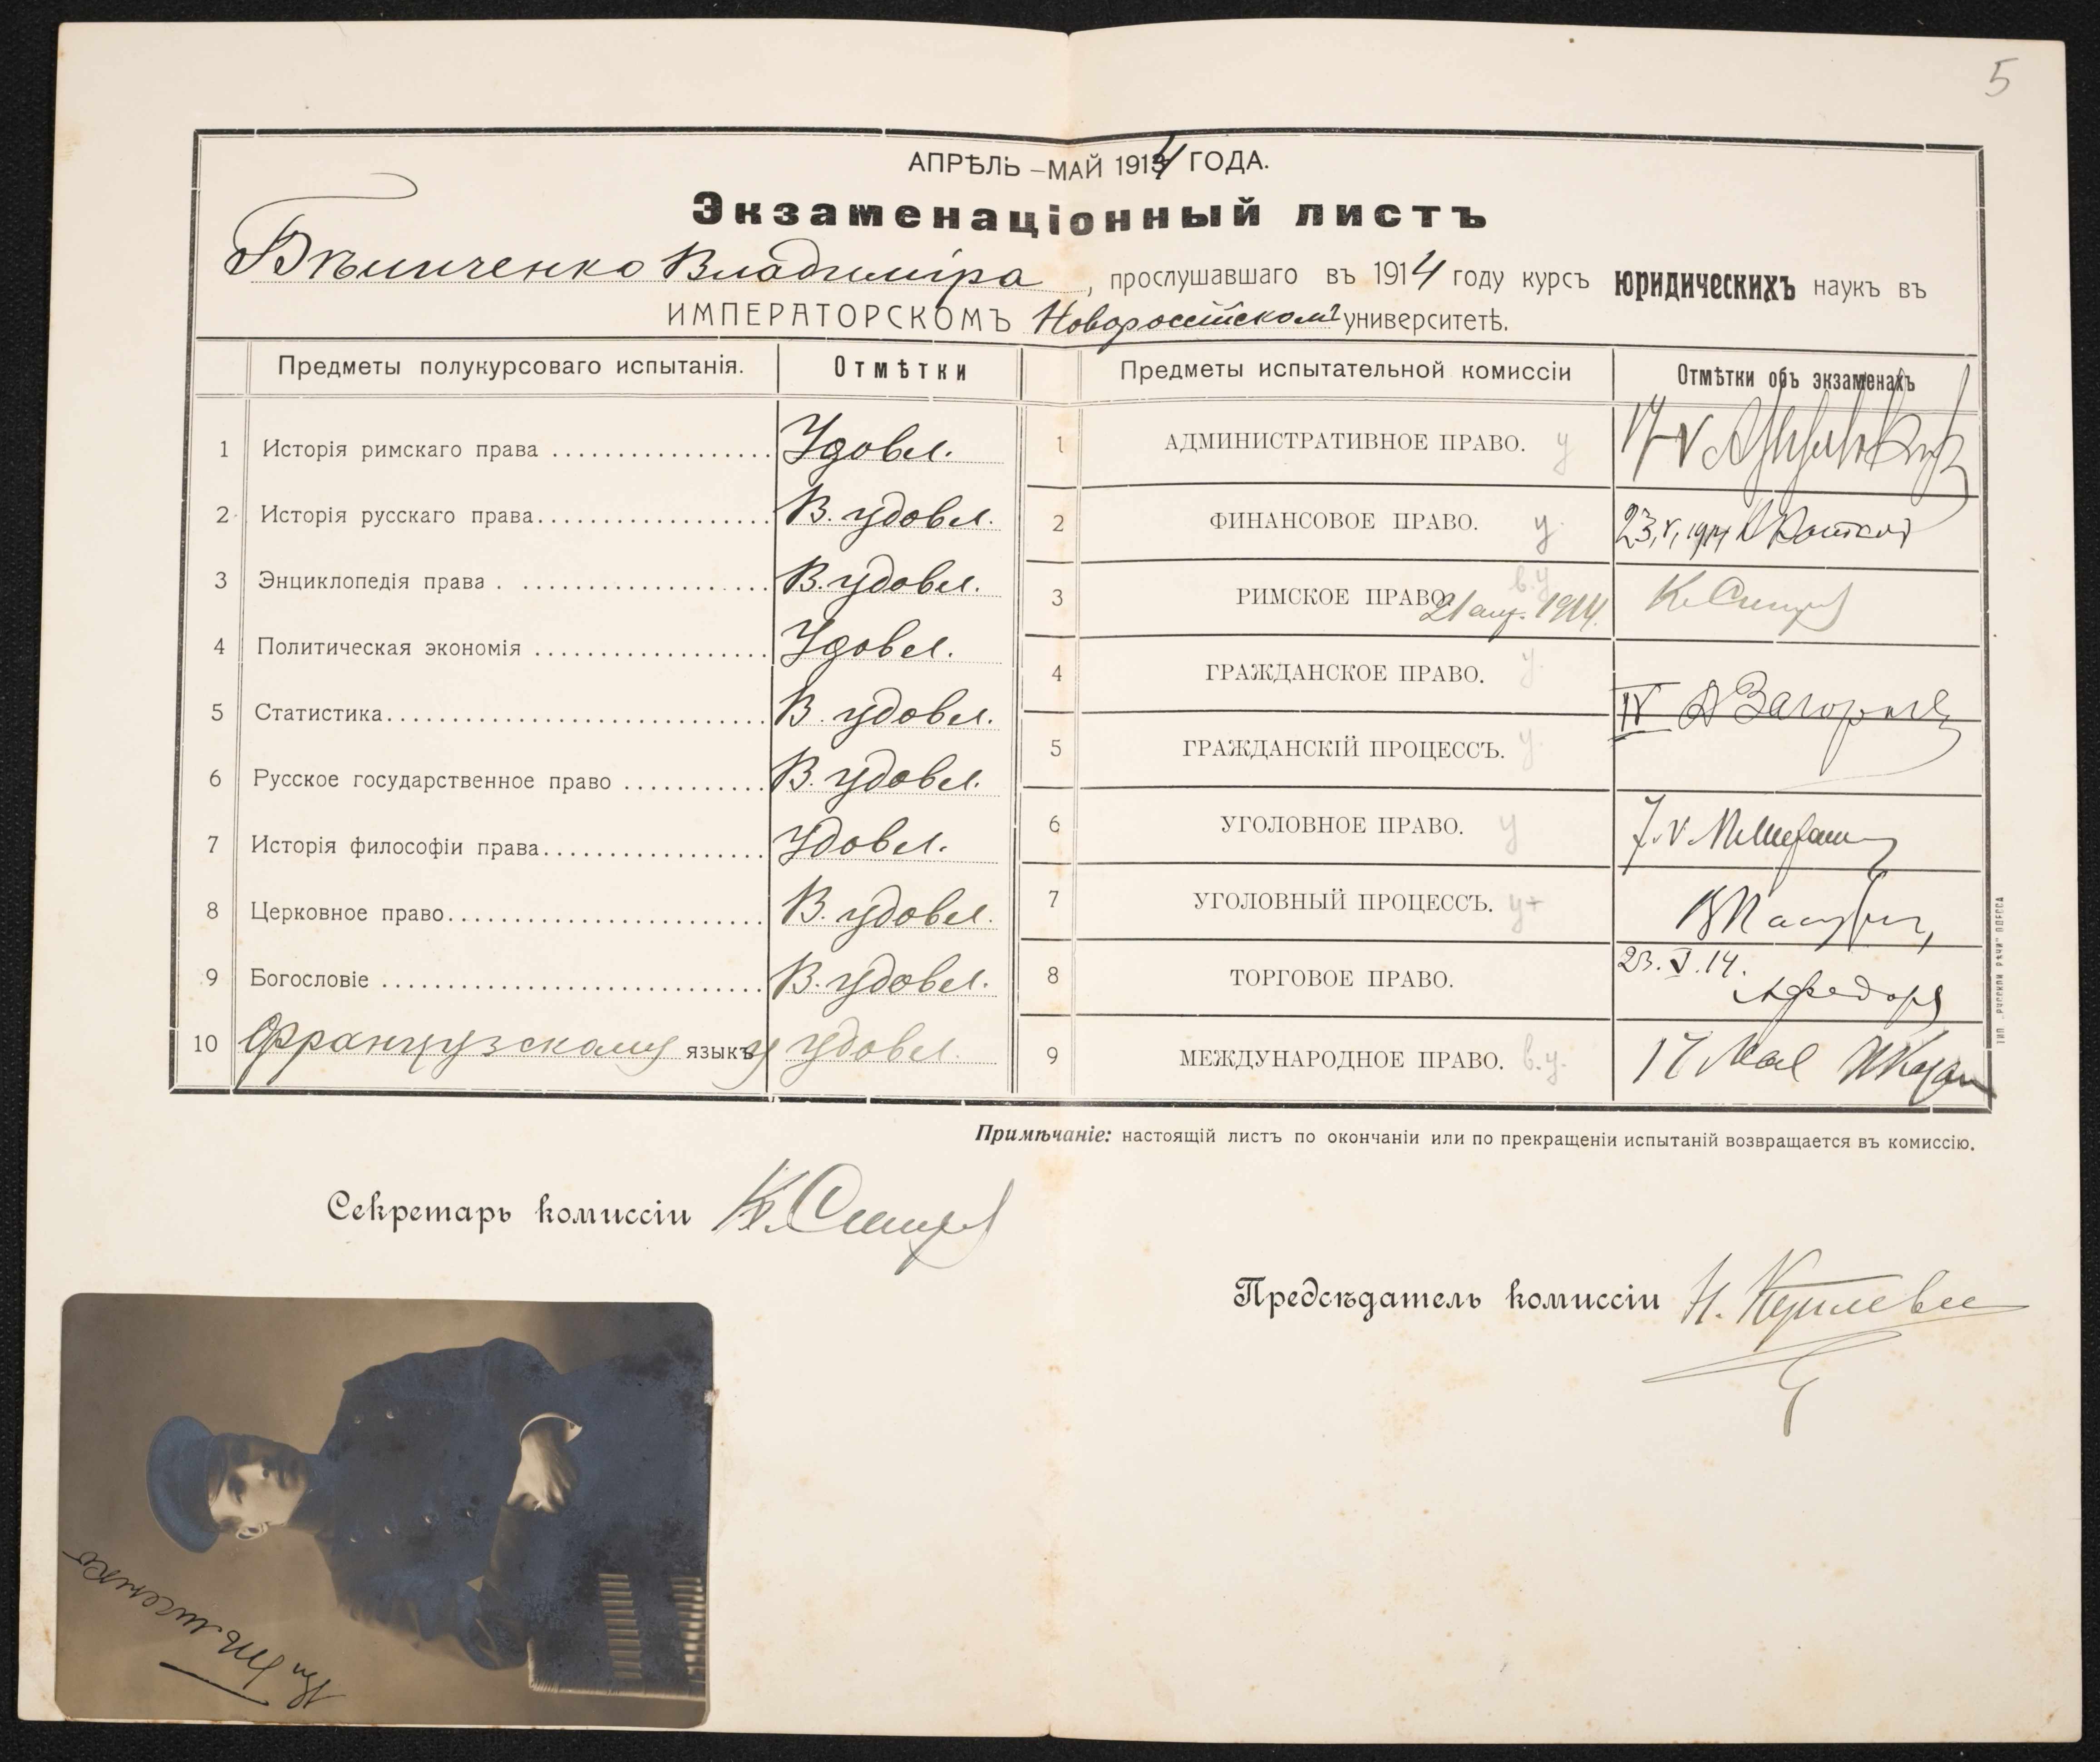 5
АПРѢЛЬ – МАЙ 1914 ГОДА.
Экзаменаціонный листъ
Владиміра, прослушавшаго въ 1914 году курсъ юридическихъ наукъ въ
ИМПЕРАТОРСКОМЪ Новороссійскомъ университетѣ.
Предметы полукурсоваго испытанія. Отмѣтки
1 Исторія римскаго права Удовл.
2 Исторія русскаго права В. удовл.
3 Энциклопедія права В. удовл.
4 Политическая экономія Удовл.
5 Статистика В. удовл.
6 Русское государственное право В. удовл.
7 Исторія философіи права Удовл.
8 Церковное право В. удовл.
9 Богословіе В. удовл.
10 Французскому языку удовл.
Предметы испытательной комиссіи Отмѣтки объ экзаменахъ
1 АДМИНИСТРАТИВНОЕ ПРАВО. у 17 V
2 ФИНАНСОВОЕ ПРАВО. у. 23, V, 1914
3 РИМСКОЕ ПРАВО. в.у 21 апр. 1914.
4 ГРАЖДАНСКОЕ ПРАВО. у.
IV
5 ГРАЖДАНСКІЙ ПРОЦЕССЪ. у.
6 УГОЛОВНОЕ ПРАВО. у 7. V
7 УГОЛОВНЫЙ ПРОЦЕССЪ. у+
8 ТОРГОВОЕ ПРАВО. 23. V. 14.
9 МЕЖДУНАРОДНОЕ ПРАВО. в.у. 17 Мая
ТИП. „РУССКОЙ РѢЧИ" ОДЕССА
Примѣчаніе: настоящій листъ по окончаніи или по прекращеніи испытаній возвращается въ комиссію.
Секретарь комиссіи
Предсѣдатель комиссіи